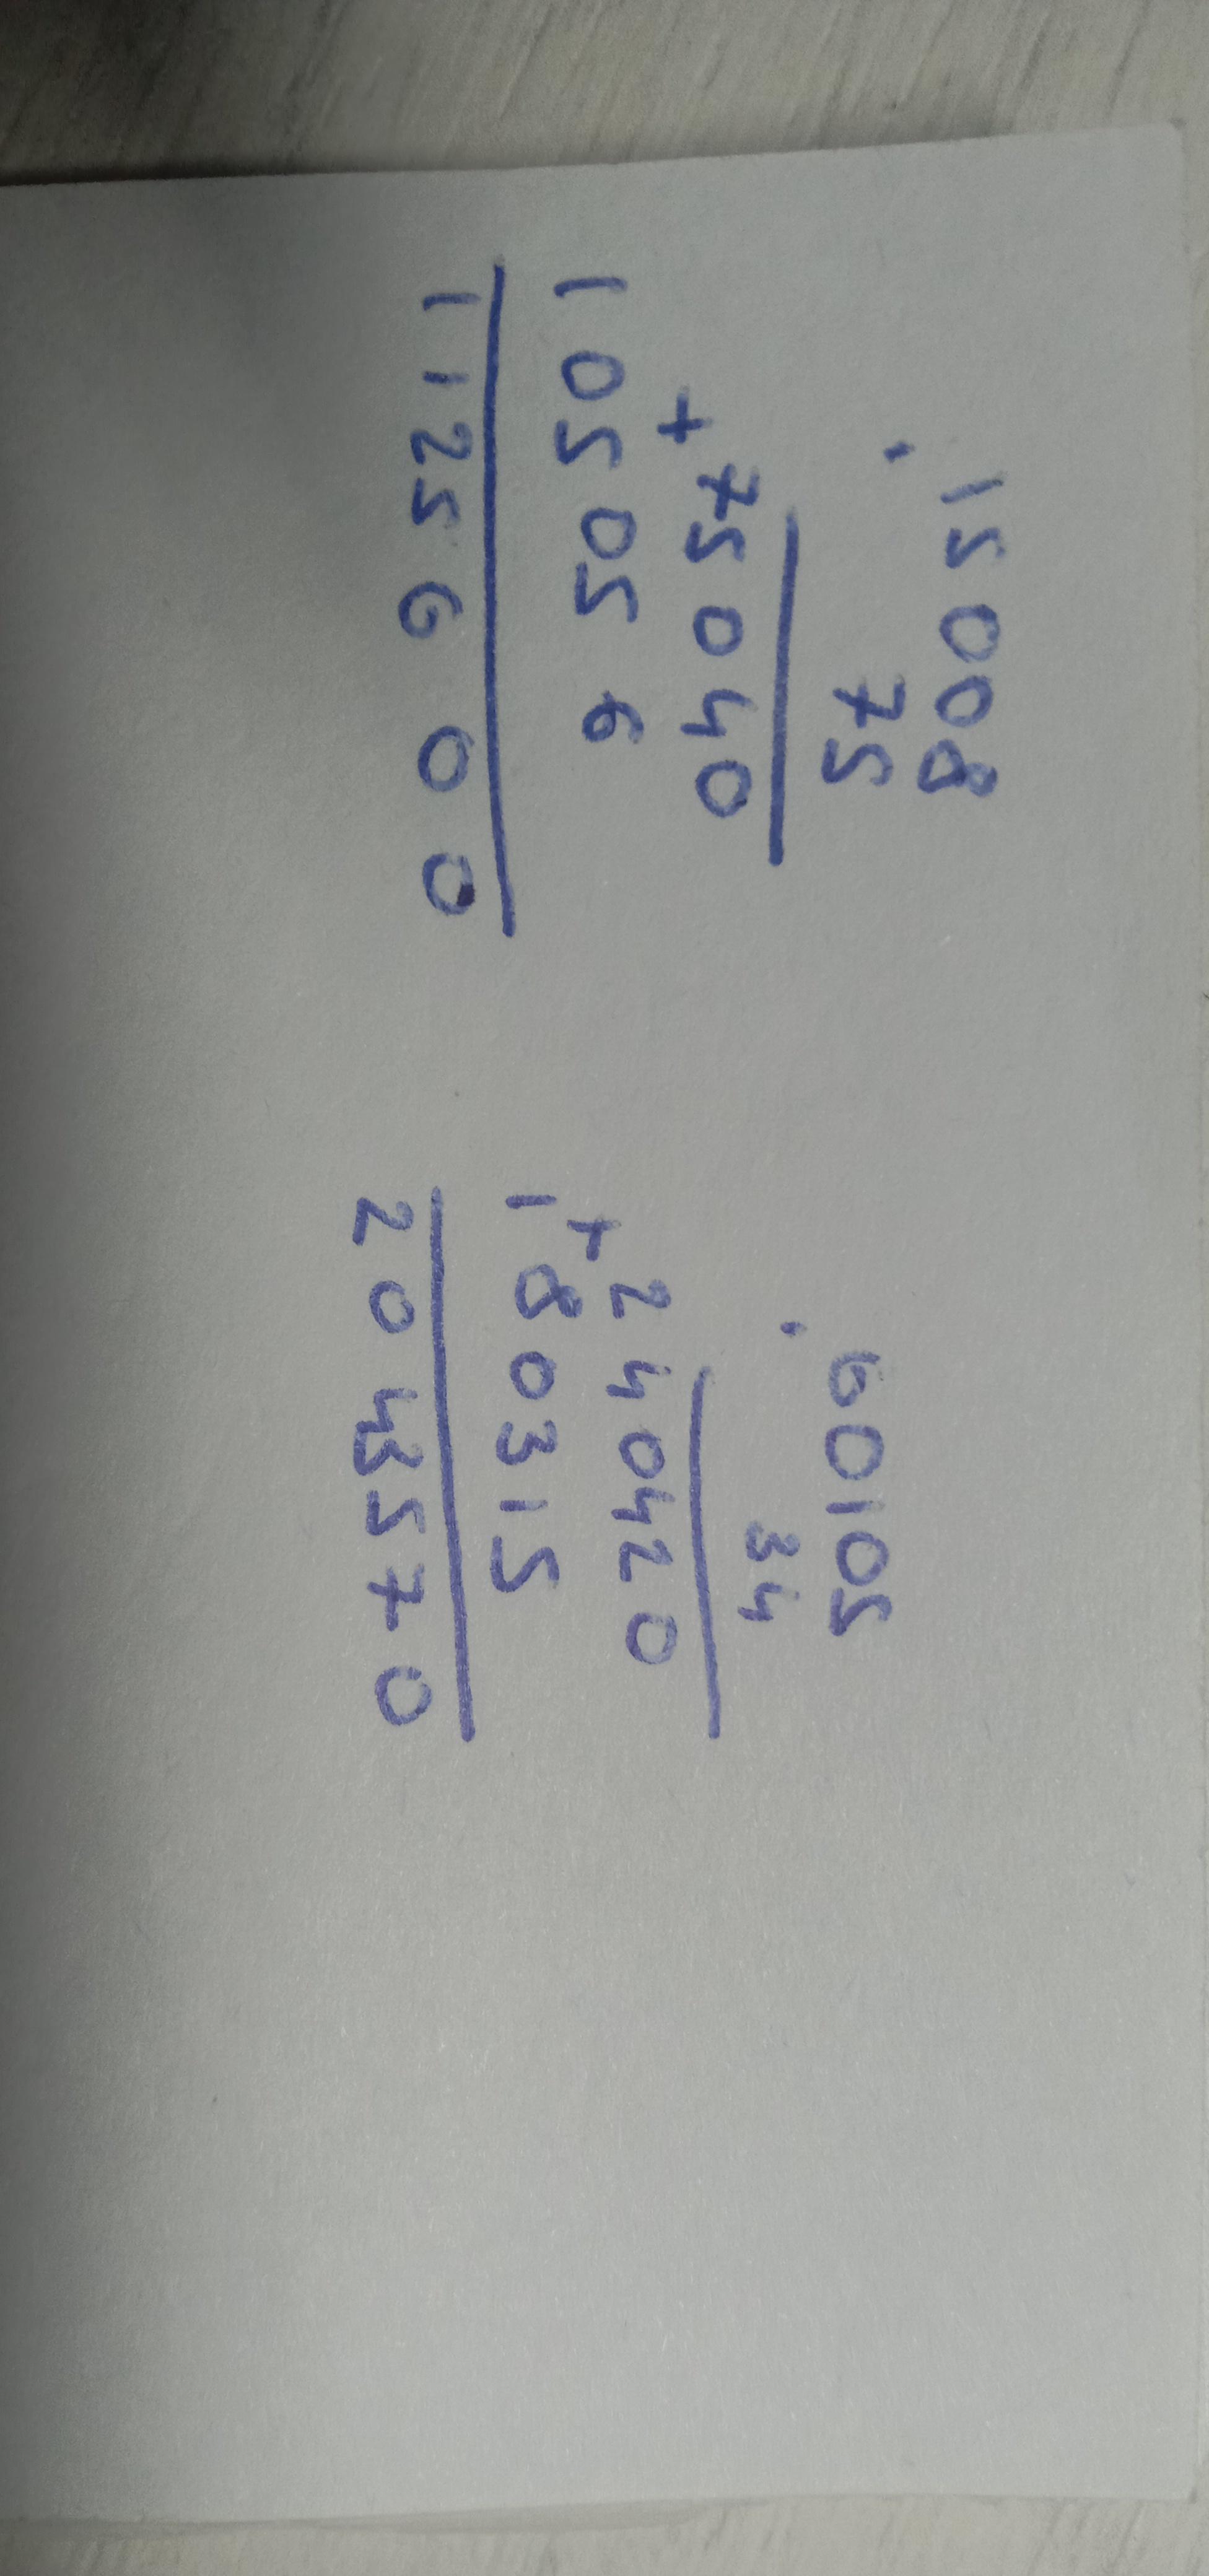 15008
· 75
75040
+
105056
1125600
60105
· 34
240420
+
180315
2043570